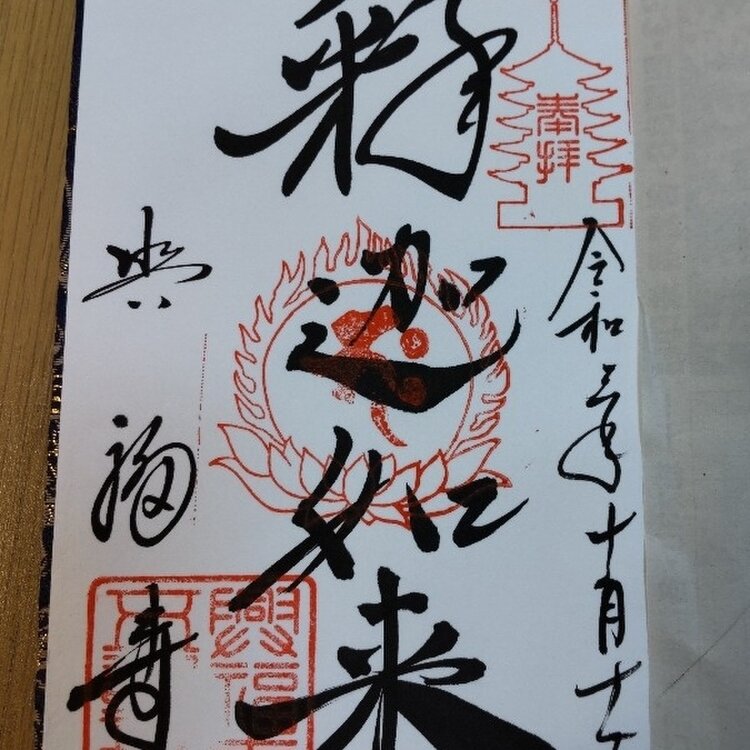 奉拝
令和三年十月十
釈迦如来
興福寺
興福